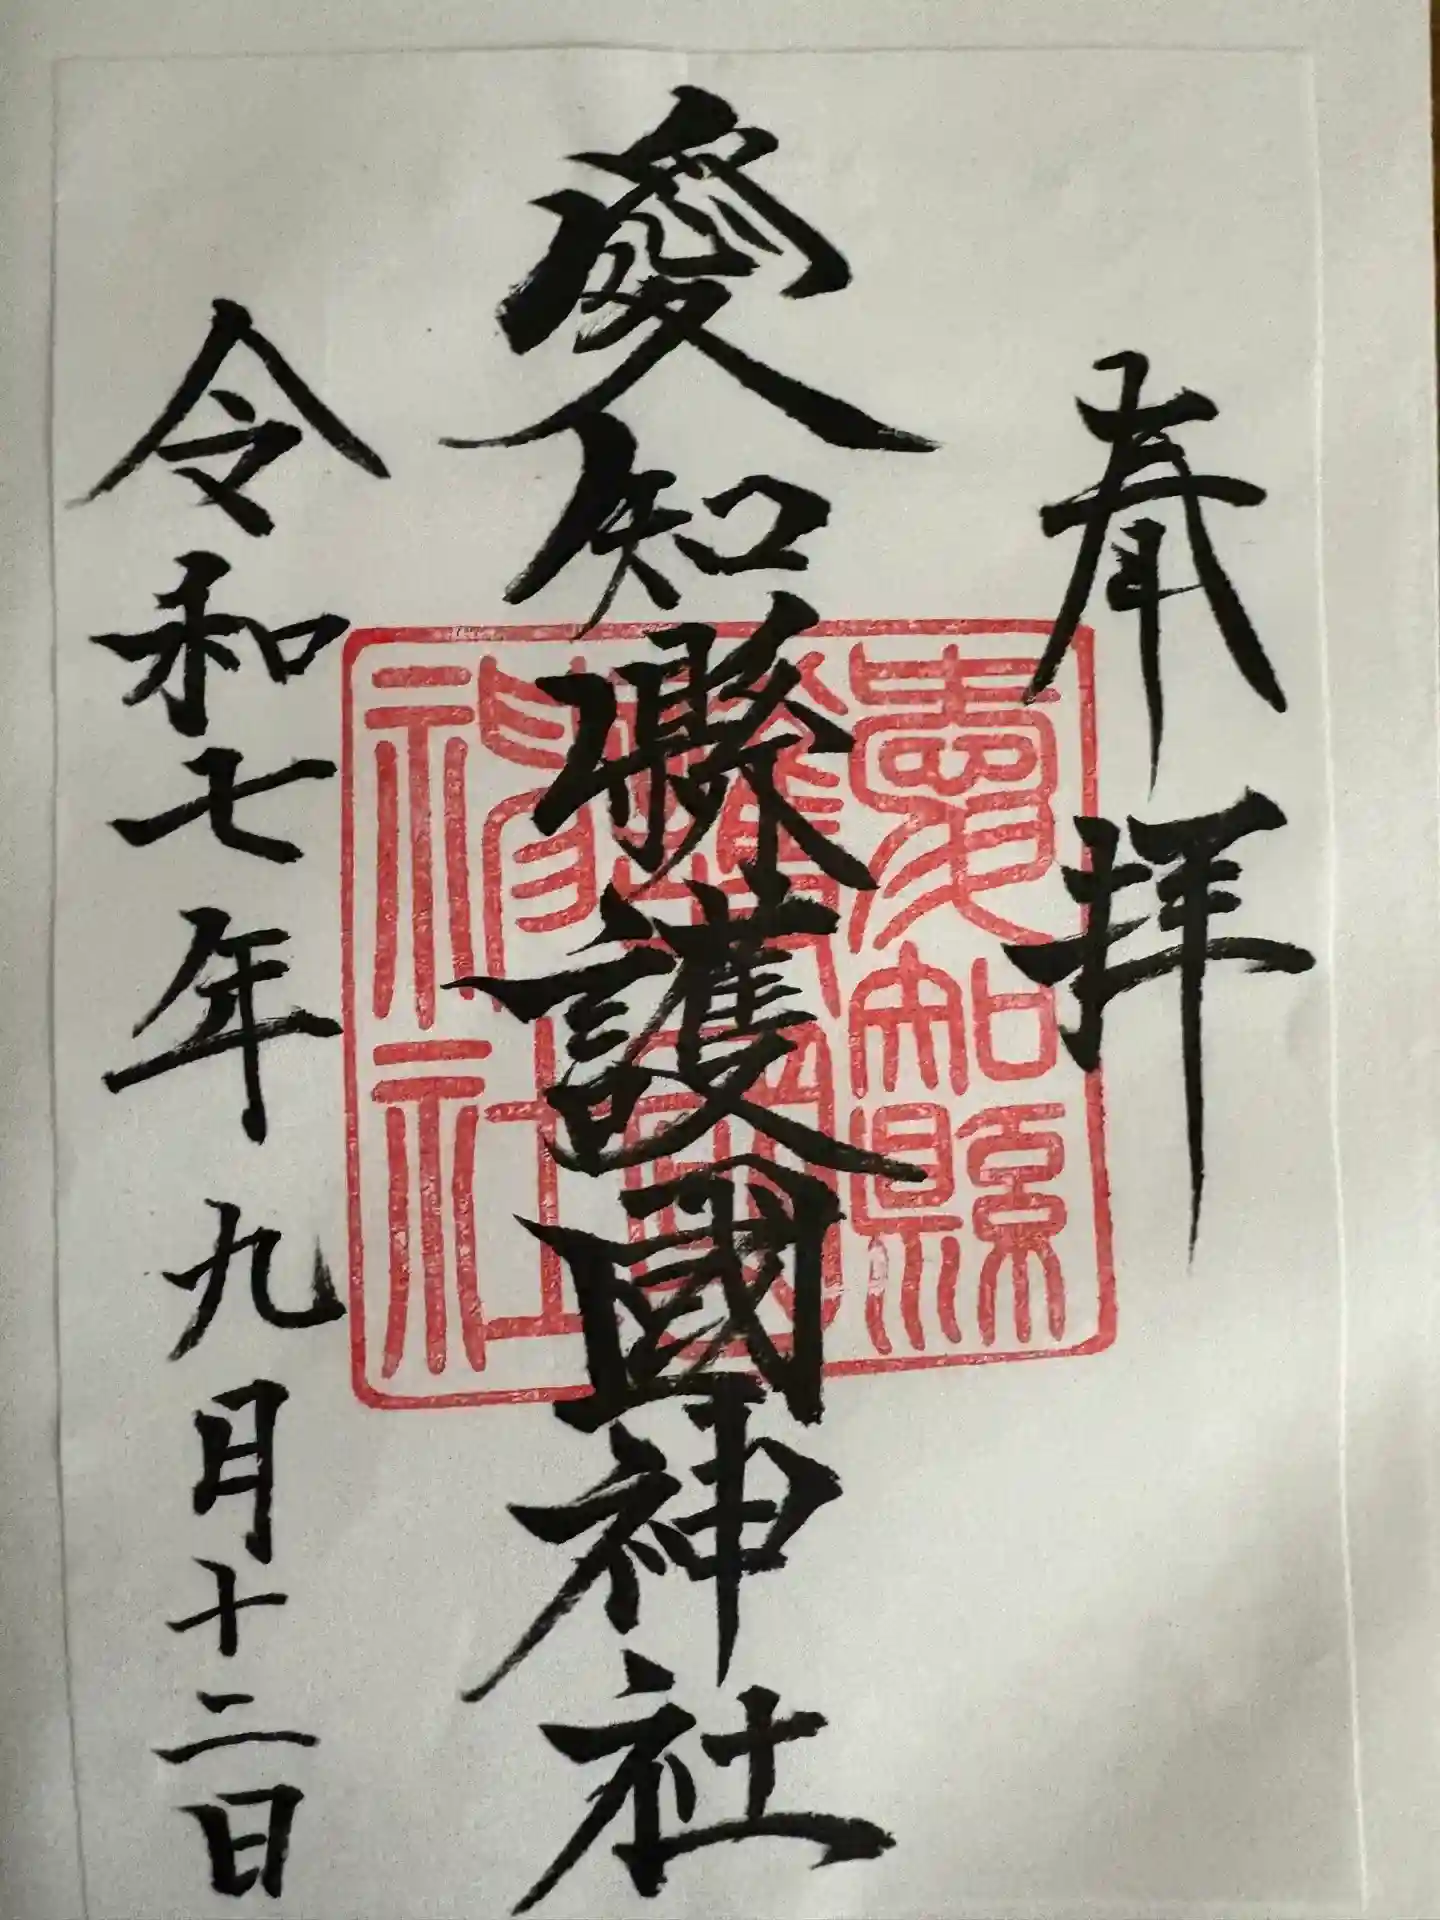 奉拝
愛知縣護國神社
愛知縣護國神社
令和七年九月十二日